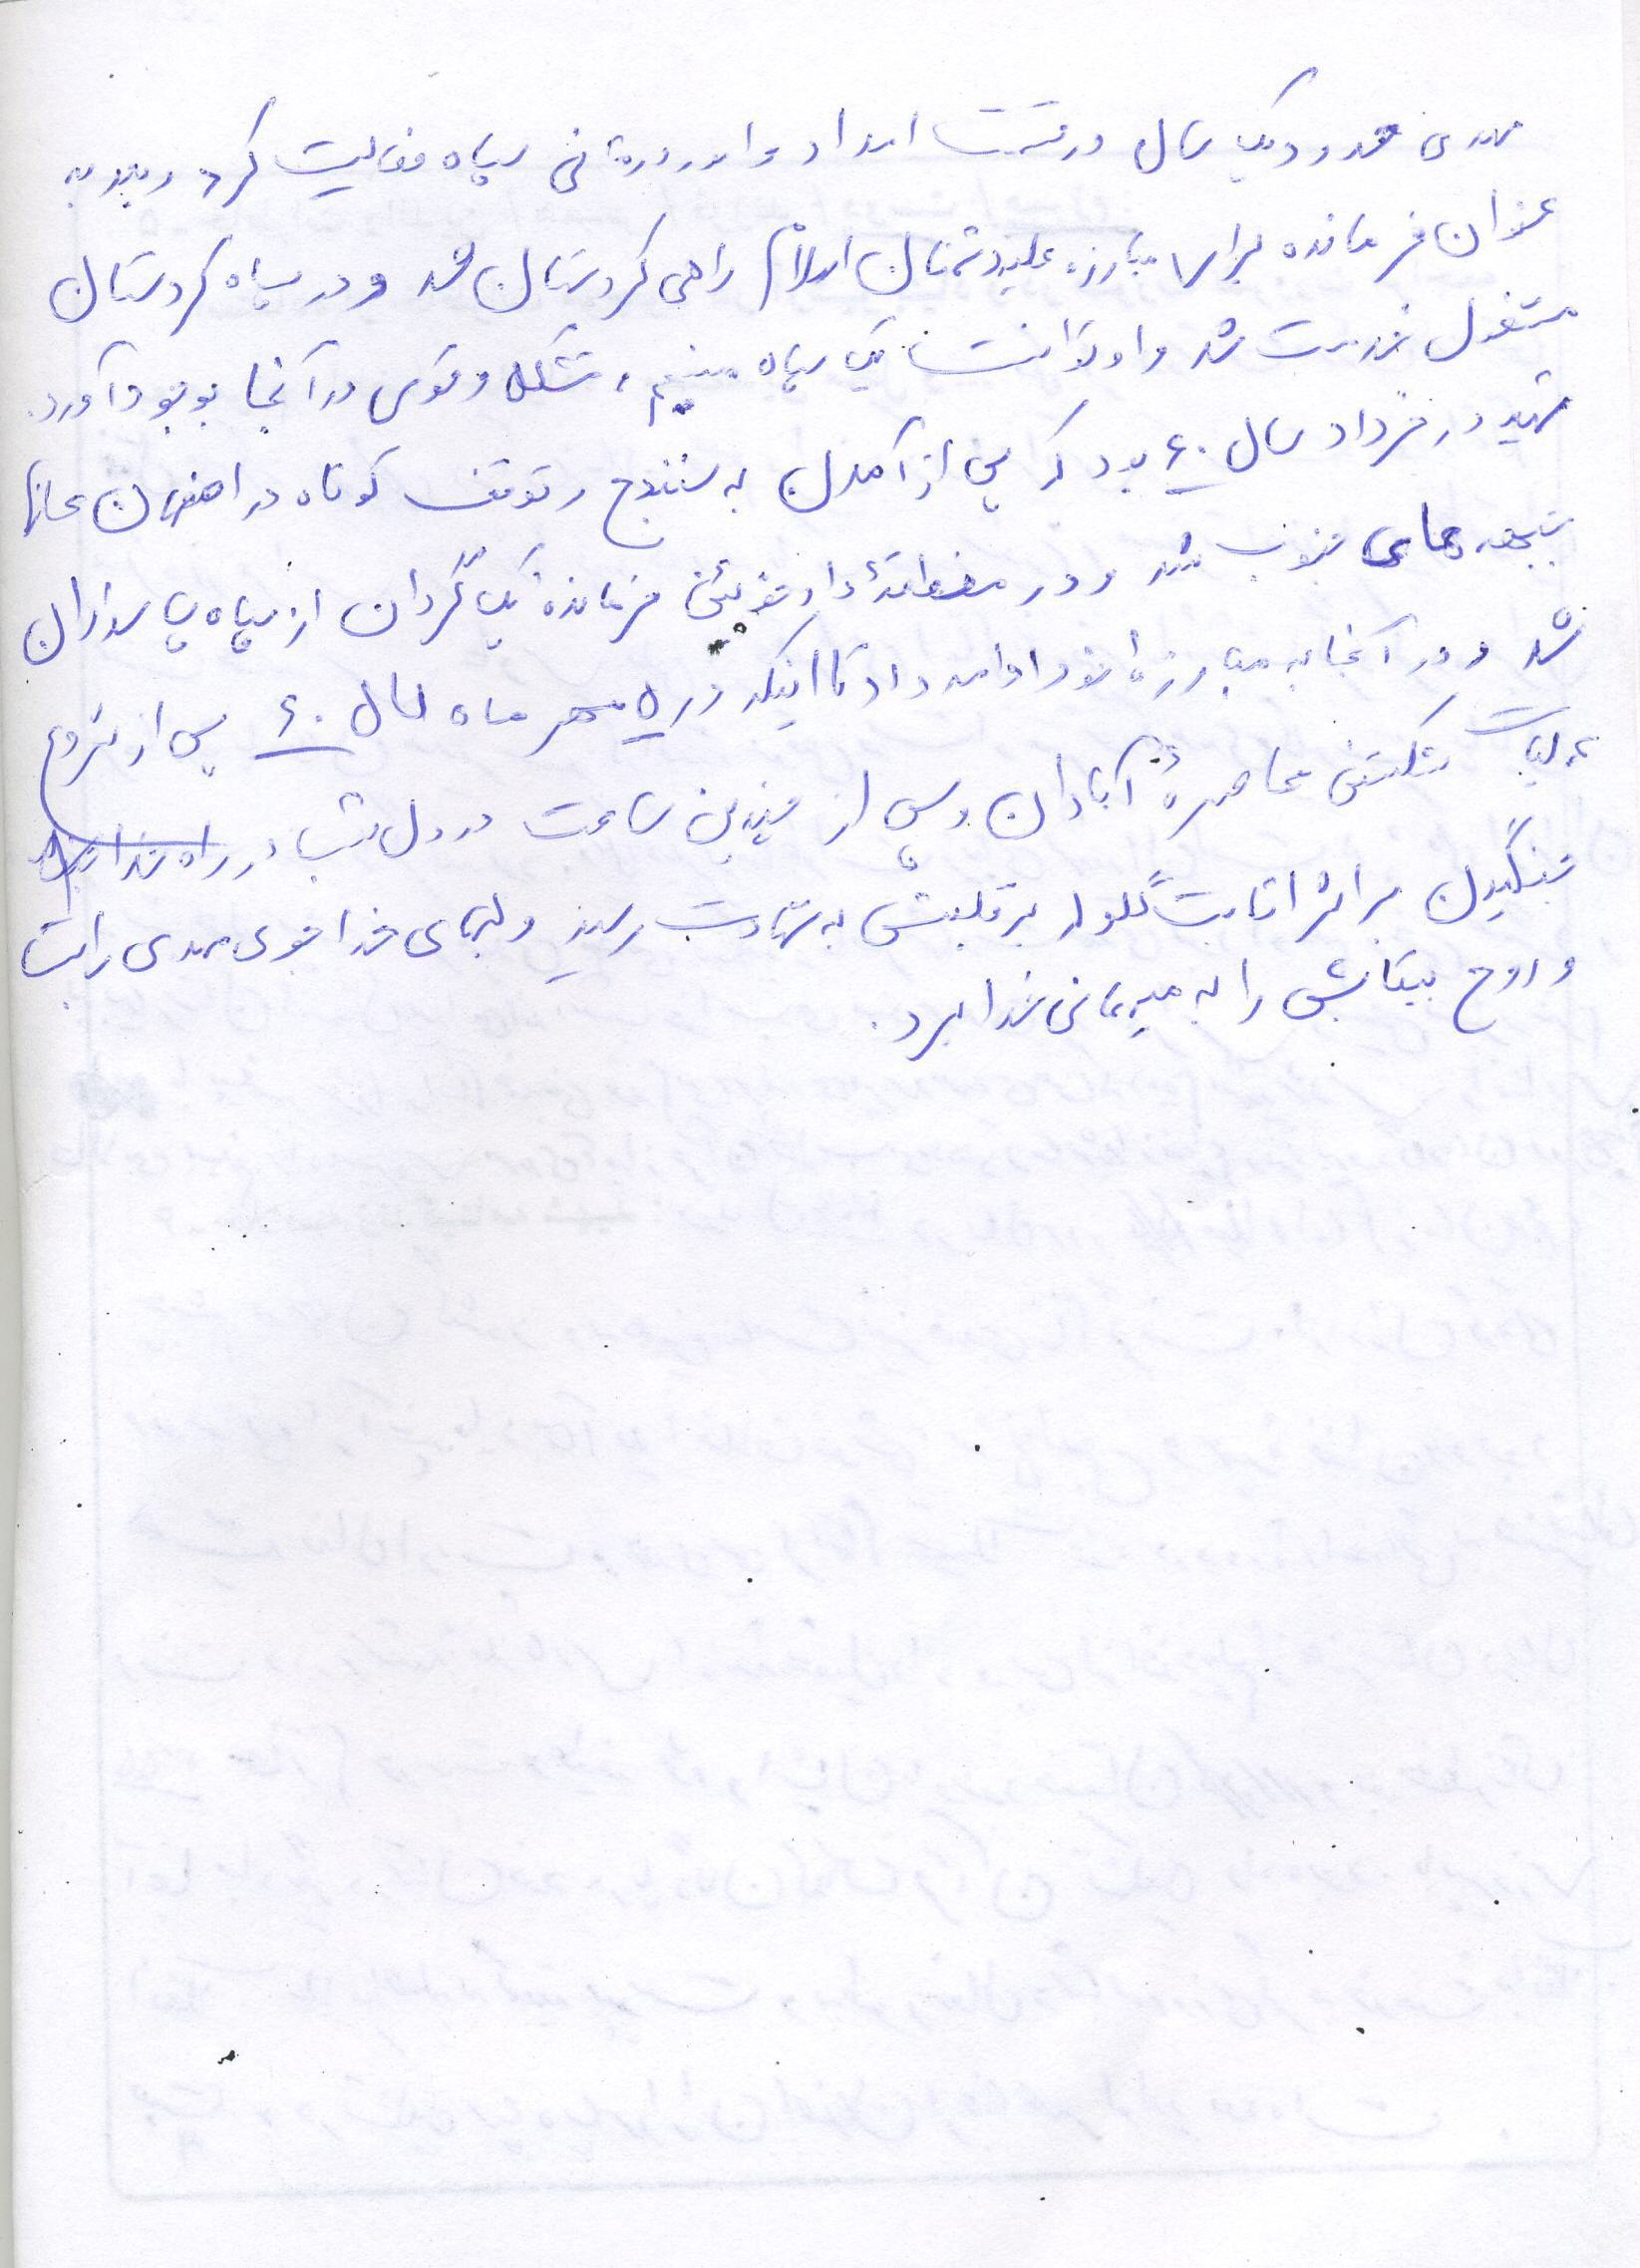 مهدی حدود یک سال در قسمت امداد و امور درمانی سپاه فعالیت کرد و بعد به
عنوان فرمانده برای مبارزه علیه دشمنان اسلام راهی کردستان شد و در سپاه کردستان
مشغول خدمت شد و او توانست یک سپاه منسجم، متشکل و قوی در آنجا بوجود آورد.
شهید در خرداد سال ۶۰ بود که پس از آمدن به سنندج و توقف کوتاه در اصفهان عازم
جبهه های جنوب شد و در فرمانده یک گردان از سپاه پاسداران
شد و در آنجا به مبارزه خود ادامه داد تا اینکه در ۵ مهر ماه سال ۶۰ پس از شروع
عملیات شکستن محاصره آبادان و پس از چندین ساعت در دل شب در راه خدا
جنگیدن بر اثر اصابت گلوله بر قلبش به شهادت رسید و لبهای خدا جوی مهدی را بست
و روح بیتابش را به میهمانی خدا برد.